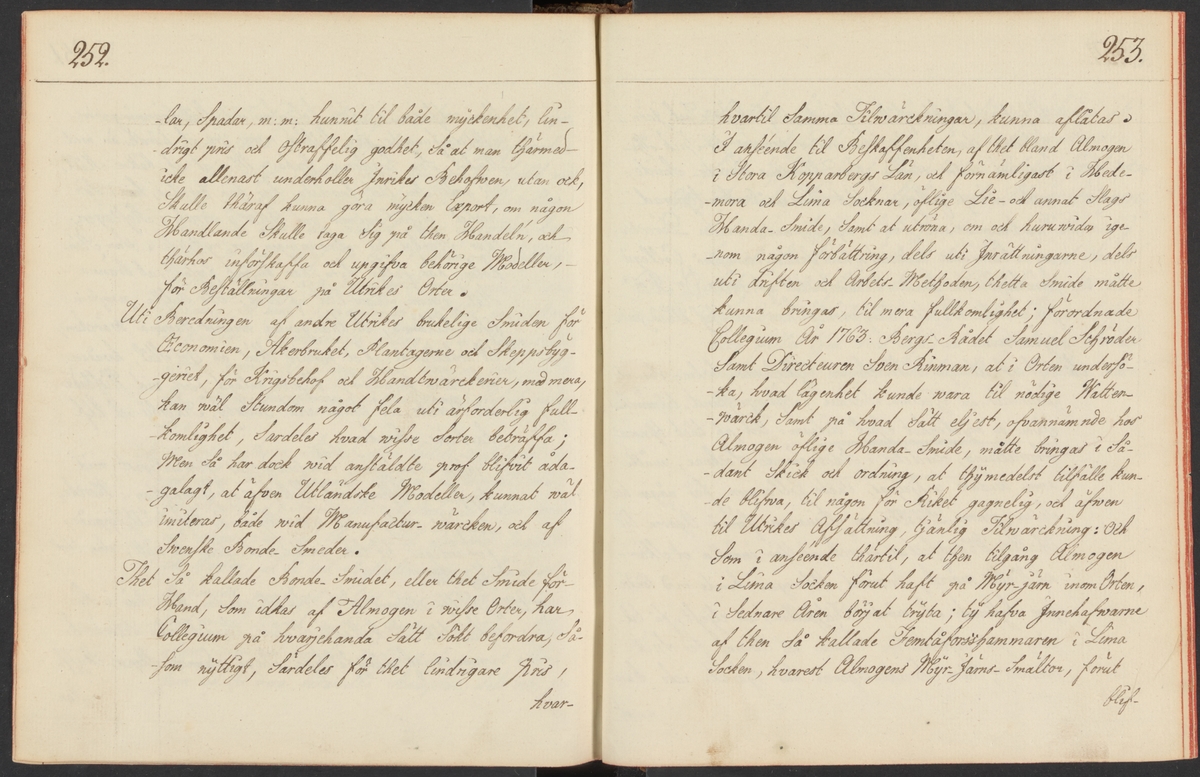 252.
-lar, Spadar, m: m: hunnit til både myckenhet, lin-
-drigt pris och Ostraffelig godhet, Så at man thärmed
icke allenast underholler Inrikes Behofwen, utan ock,
Skulle thäraf kunna göra mycken Export, om någon
Handlande Skulle taga Sig på then Handeln, och
thärhos införskaffa och upgifva behörige Modeller, -
för Beställningar på Utrikes Orter.
Uti Beredningen af andre Utrikes brukelige Smiden för
Œconomien, Åkerbruket, Plantagerne och Skeppsbyg-
-geriet, för Krigsbehof och Handtwärckerier, med mera,
kan wäl Stundom något fela uti ärforderlig full-
-komlighet, Särdeles hvad wisse Sorter beträffa;
Men Så har dock wid anstäldte prof blifvit åda-
-galagt, at äfven Utländske Modeller, kunnat wäl
imiteras, både wid Manufactur-wärcken, och af
Svenske Bonde-Smeder.
Thet Så kallade Bonde-Smidet, eller thet Smide för
Hand, Som idkas af Almogen i wisse Orter, har
Collegium på hvarjehanda Sätt Sökt befordra, Så-
-som nyttigt, Särdeles för thet lindrigare Pris,
hvar-
253.
hvartil Samma Tilwärckningar, kunna aflåtas.
I anseende til Beskaffenheten, af thet bland Almogen
i Stora Kopparbergs Län, och förnämligast i Hede-
-mora och Lima Socknar, öflige Lie- och annat Slags
Handa-Smide, Samt at utröna, om och huruwida ige-
-nom någon Förbättring, dels uti Inrättningarne, dels
uti driften och Arbets-Methoden, thetta Smide måtte
kunna bringas, til mera fullkomlighet; förordnade
Collegium År 1763. Bergs-Rådet Samuel Schröder
Samt Directeuren Sven Rinman, at i Orten undersö-
-ka, hvad lägenhet kunde wara til nödige Watten-
-wärck, Samt på hvad Sätt eljest, ofvannämnde hos
Almogen öflige Handa-Smide, måtte bringas i Så-
-dant Skick och ordning, at thymedelst tilfälle kun-
-de blifva, til någon för Riket gagnelig, och äfwen
til Utrikes Afsättning, tjänlig Tilwärckning: Och
Som i anseende thärtil, at then tilgång Almogen
i Lima Socken förut haft på Myr-järn inom Orten,
i Sednare Åren börjat tryta; ty hafva Innehafwarne
af then Så kallade Femtåforsshammaren i Lima
Socken, hvarest Almogens Myr-Järns-Smältor, förut
blif-